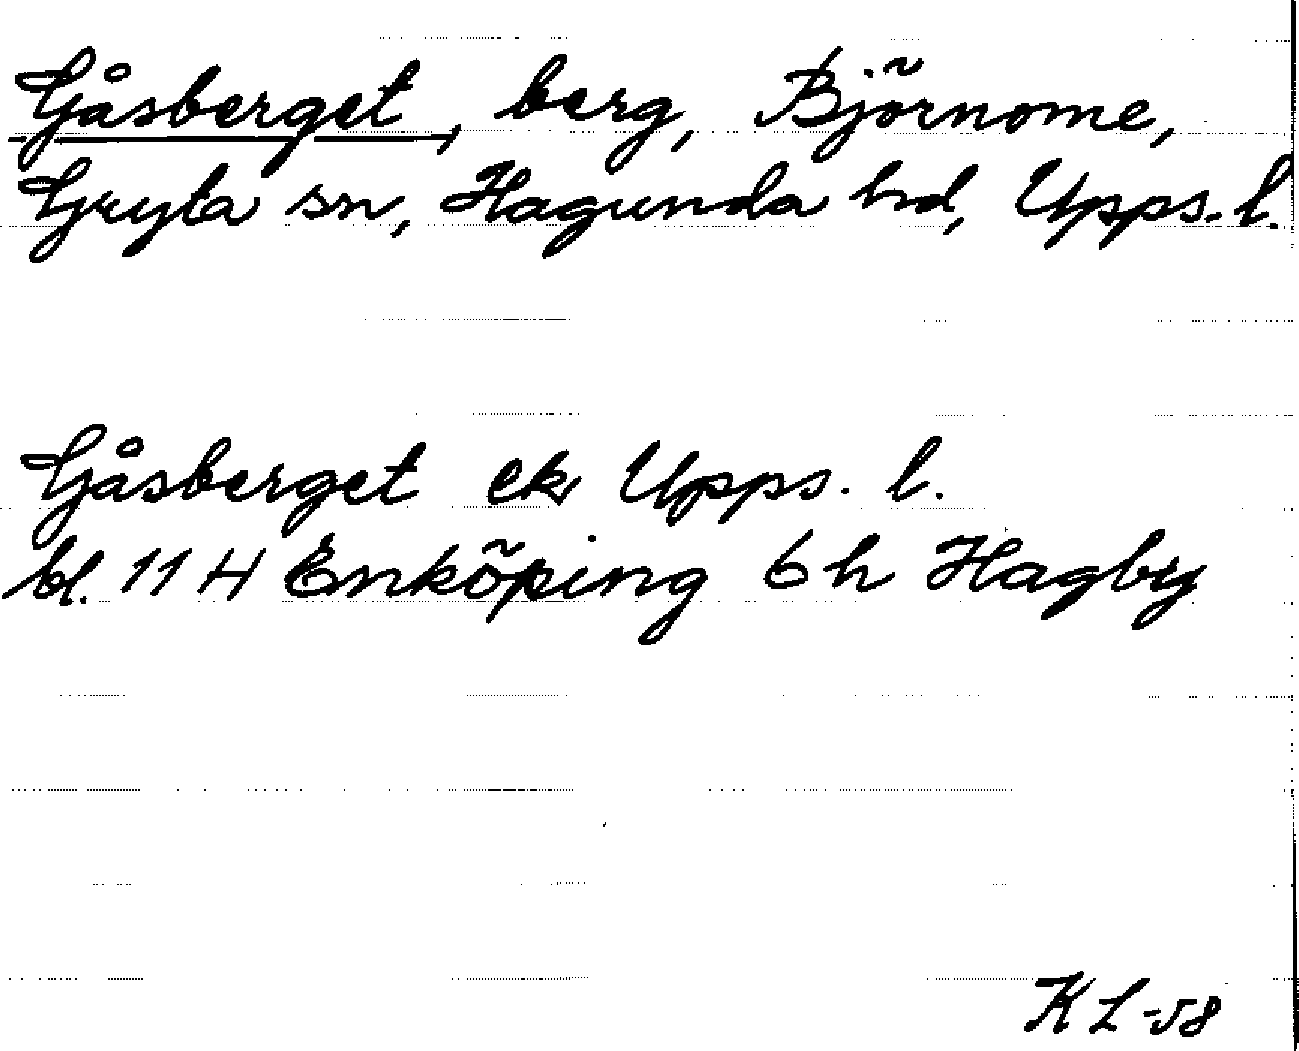 Gåsberget, berg, Björnome,
Gryta sn, Hagunda hd, Upps. l.
Gåsberget ek Upps. l.
bl. 11 H Enköping 6 h Hagby
KL-58